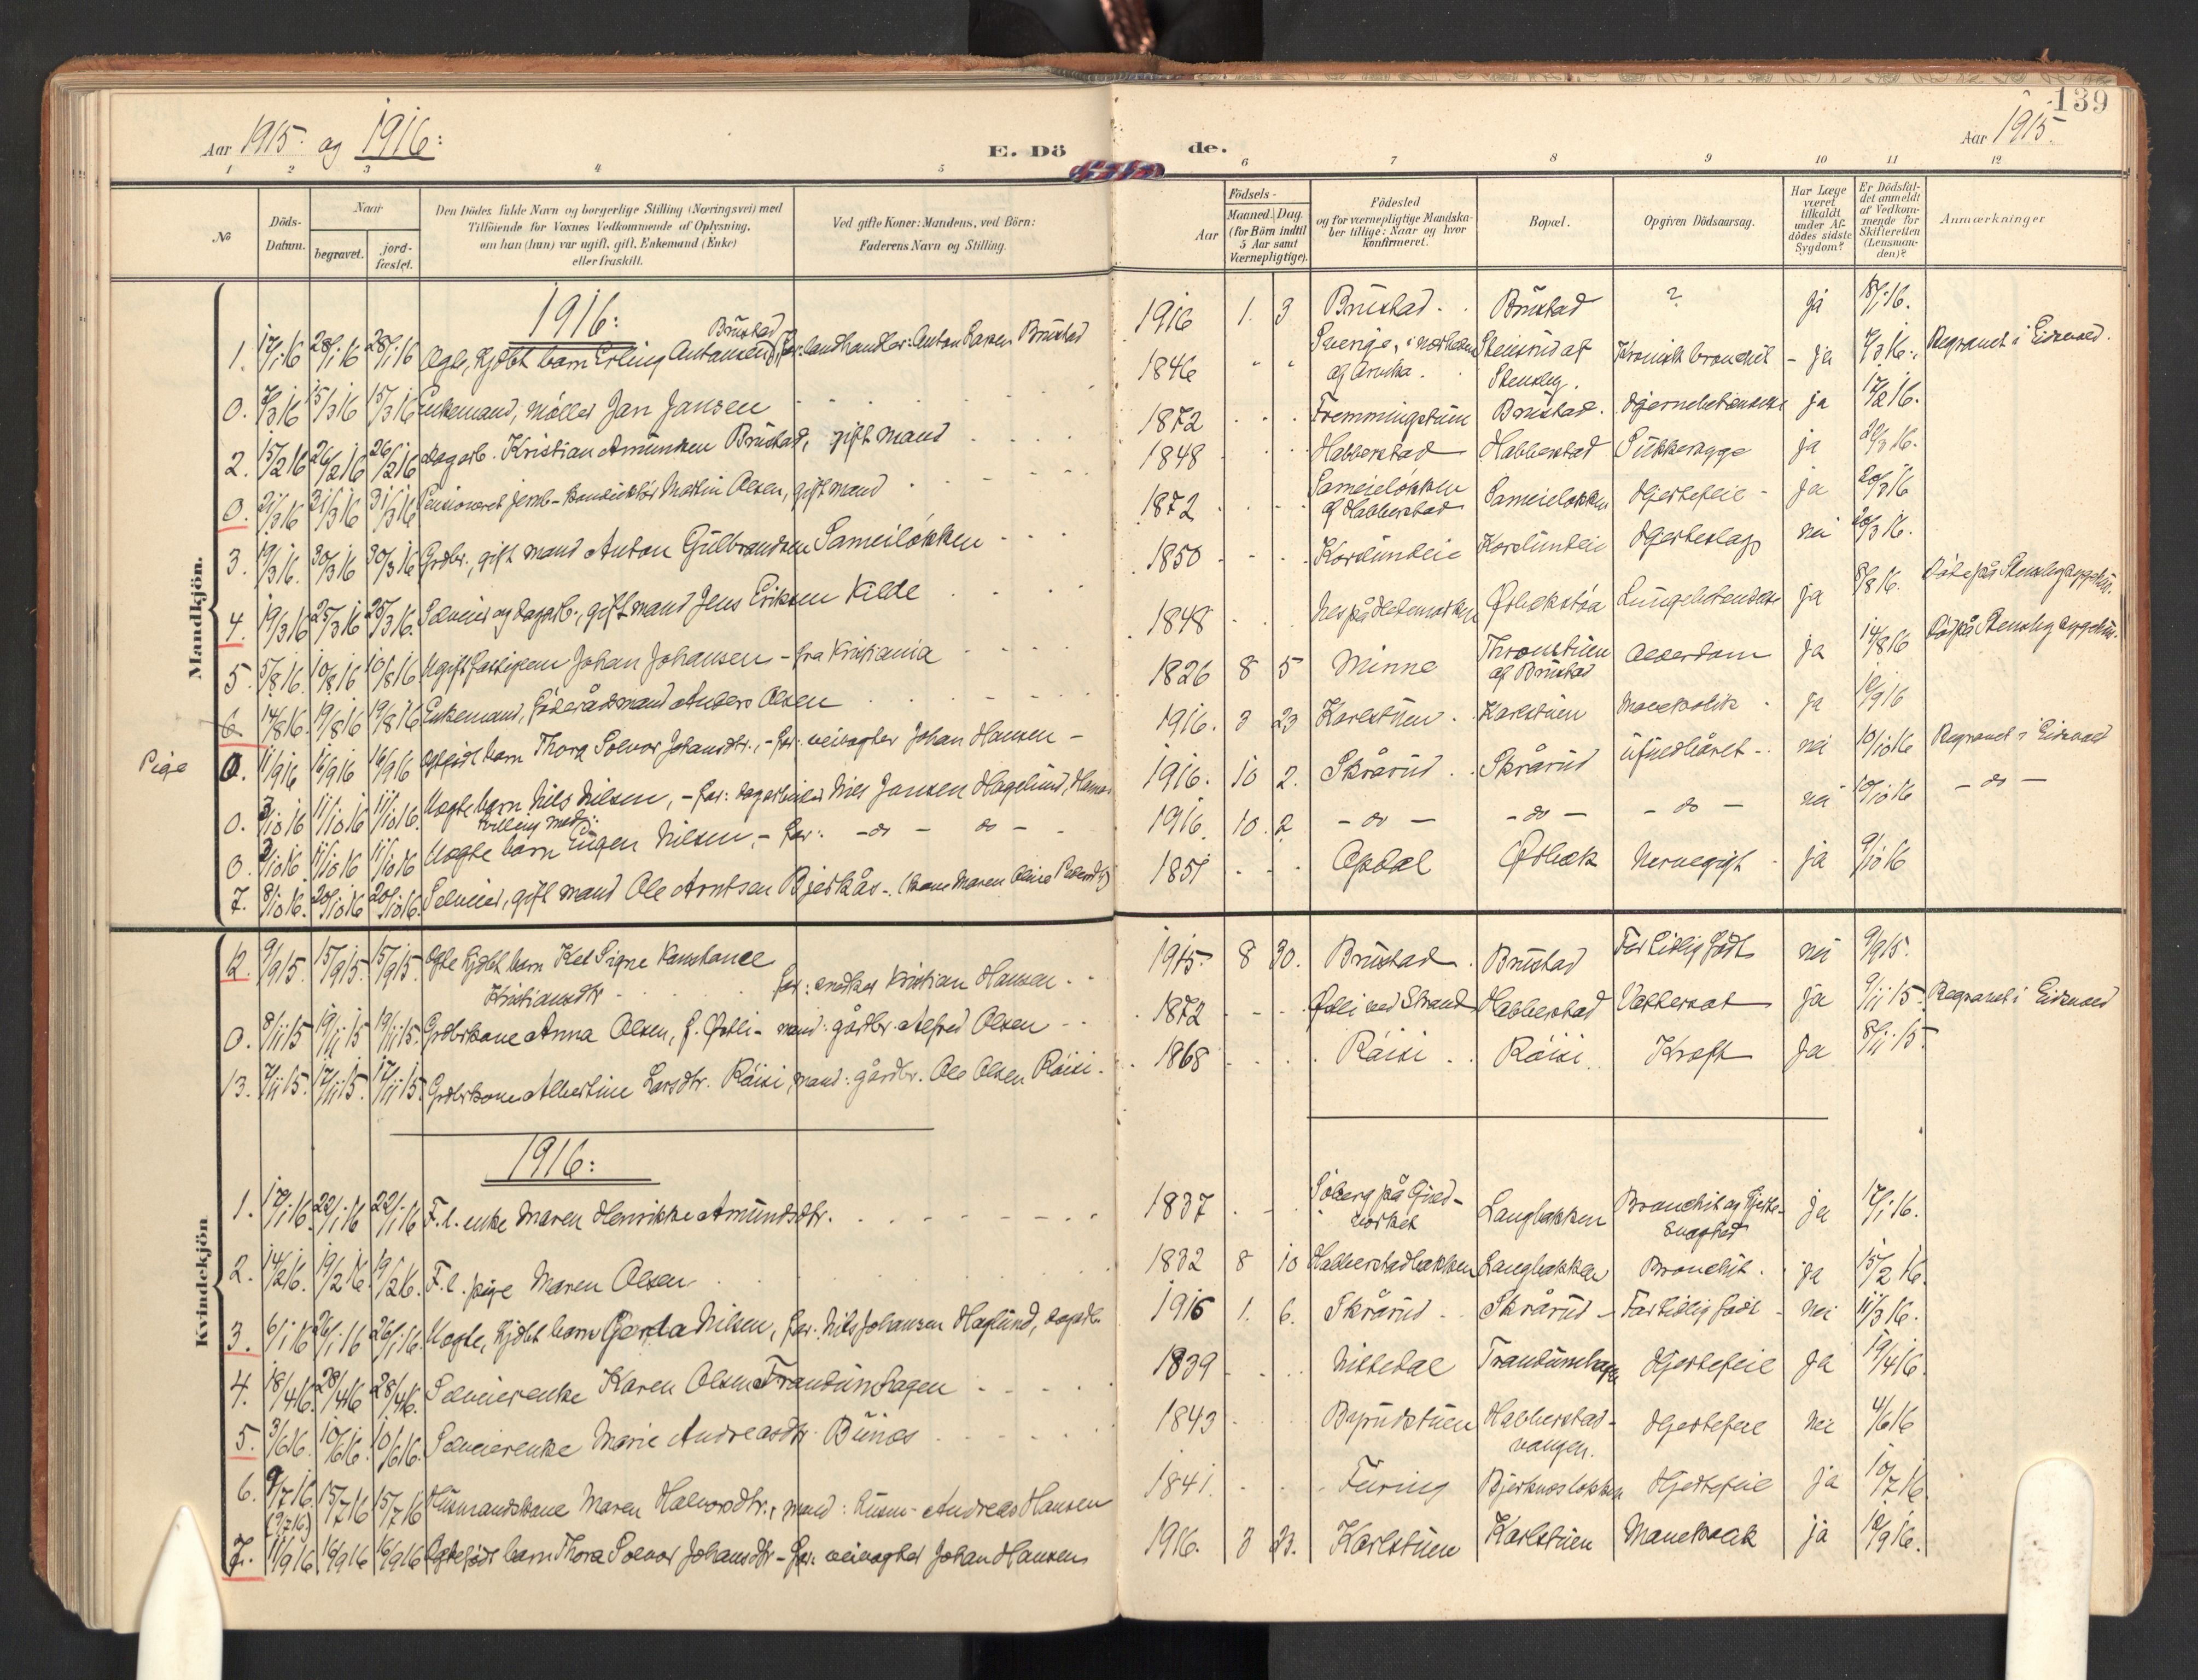 139
Aar 1915. og 1916:
E. Dö
de.
Aar 1915.
1 2 3 4 5 6 7 8 9 10 11 12
No
Döds-
Datum.
Naar
begravet.
jord-
fæstet.
Den Dödes fulde Navn og borgerlige Stilling (Næringsvei) med
Tilföiende for Voxnes Vedkommende af Oplysning,
om han (hun) var ugift, gift, Enkemand (Enke)
eller fraskilt.
Ved gifte Koner: Mandens, ved Börn:
Faderens Navn og Stilling.
Aar
Födsels-
Maaned. Dag.
(for Börn indtil
5 Aar samt
Værnepligtige).
Födested
og for værnepligtige Mandska-
ber tillige: Naar og hvor
konfirmeret.
Bopæl.
Opgiven Dödsaarsag.
Har Læge
været
tilkaldt
under Af-
dödes sidste
Sygdom?
Er Dödsfal-
det anmeldt
af Vedkom-
mende for
Skifteretten
(Lensman-
den)?
Anmærkninger
Mandkjön.
1916:
1. 17/1 16 28/1 16 28/1 16 Ægte, hjdbt barn Erling Antonsen Brustad, far: landhandler Anton Larsen Brustad 1916 1. 3 Brustad Brustad ? ja 18/1 16.
0. 7/3 16 15/3 16 15/3 16 Enkemand, møller Jan Jansen 1846 " " Sverige, i nærheden af Arvika. Steinsrud af Stensby. Kronisk bronchit - ja 7/3 16. Begravet i Eidsvold.
2. 15/2 16 26/2 16 26/2 16 dagarb. Kristian Amundsen Brustad, gift mand 1872 Fremmingstuen Brustad. Hjernebetændelse ja 17/2 16.
0. 21/3 16 31/3 16 31/3 16 Pensioneret jernb-konduktør Martin Olsen, gift mand 1848 Habberstad Habberstad Sukkersyge ja 22/3 16.
3. 19/3 16. 30/3 16 30/3 16 Grdbr., gift mand Anton Gulbrandsen Sameiløkken 1872 Sameieløkken af Habberstad Sameieløkken Hjertefeil - ja 20/3 16
4. 19/3 16 25/3 16 25/3 16. Selveier og dagarb., gift mand Jens Eriksen Kilde 1850 Korslundeie Korslundeie Hjerteslag nei 20/3 16.
5. 5/8 16. 10/8 16 10/8 16 Ugift fattiglem Johan Johansen - fra Kristiania 1848 Nes på Hedemarken Østbækstøa Lungebetændelse ja 8/8 16. Døde på Stensby sygehus.
6 14/8 16. 19/8 16 19/8 16 Enkemand, föderådsmand Anders Olsen 1826 8 5 Minne Thronstuen af Brustad Alderdom ja 14/8 16 Død på Stensby sygehus.
Pige 0. 11/9 16 16/9 16 16/9 16 Ægtefødt barn Thora Solvor Johansdtr., - far: veivogter Johan Hansen - 1916. 3 23 Karlstuen Karlstuen Mavekolik ja 12/9 16
0. 3/10 16 11/10 16 11/10 16. Uægte barn Nils Nilsen, - far: dagarbeider Nils Jansen Hagelund, Hamar 1916. 10 2. Skrårud Skrårud ufuldbåret nei 10/10 16 Begravet i Eidsvold
0. 3/10 16. 11/10 16. 11/10 16 tvilling med: Uægte barn Eugen Nilsen, - far: - do - do - 1916. 10. 2 - do - - do - - do - nei 10/10 16 - do -
7. 8/10 16. 20/10 16 20/10 16. Selveier, gift mand Ole Arntsen Bjerkås -. 1851 Opdal Østbæk Nervegigt ja 9/10 16
Kvindekjön
12. 9/9 15. 15/9 15. 15/9 15. Ægte hjdbt barn Kel Signe Konstance Kristiansdtr far: snedker Kristian Hansen 1915 8 30. Brustad Brustad For tidlig født nei 9/9 15.
0. 8/11 15 19/11 15 19/11 15. Grdbrkone Anna Olsen, f. Østli - mand: gårdbr. Alfred Olsen 1872 Østli ved Strand Habberstad Vattersot ja 9/11 15. Begravet i Eidsvold
13. 7/11 15. 17/11 15. 17/11 15. Grdbrkone Albertine Larsdtr. Råisi, mand: gårdbr. Ole Olsen Råisi. 1868 Råisi Råisi Kræft ja 8/11 15.
1916:
1. 17/1 16. 22/1 16 22/1 16 F. l. enke Maren Henrikke Amundsdtr. 1837 Søberg på Gjed-
Langbakken Bronchit og Hjerte-
svaghed ja 17/1 16.
2. 14/2 16. 19/2 16 19/2 16. F. l. pige Maren Olsen 1832 8 10 Habberstadbakken Langbakken Bronchit. ja 15/2 16.
3. 6/1 16 26/1 16 26/1 16. Uægte, hjdbt barn Gerda Nilsen, far: Nils Johansen Haglund, dagarb. 1916 1. 6. Skrårud Skrårud - For tidlig født - nei 11/3 16.
4. 18/4 16. 28/4 16 28/4 16. Selveierenke Karen Olsen Trandumhagen 1839 Nittedal Trandumhagen Hjertefeil ja 19/4 16.
5. 3/6 16. 10/6 16. 10/6 16. Selveierenke Marie Andreasdtr. Bunes 1843 Habberstad-
vangen. Hjertefeil nei 4/6 16
6. 9/7 16. (9/7 16) 15/7 16 15/7 16 Husmandskone Maren Halvorsdtr., mand: husm. Andreas Hansen 1841. Furing Bjerknesløkken Hjertefeil ja 10/7 16.
7. 11/9 16 16/9 16 16/9 16 Ægtefødt barn Thora Solvor Johansdtr - far: veivogter Johan Hansen 1916. 3 23. Karlstuen Karlstuen Mavekolik ja 12/9 16.